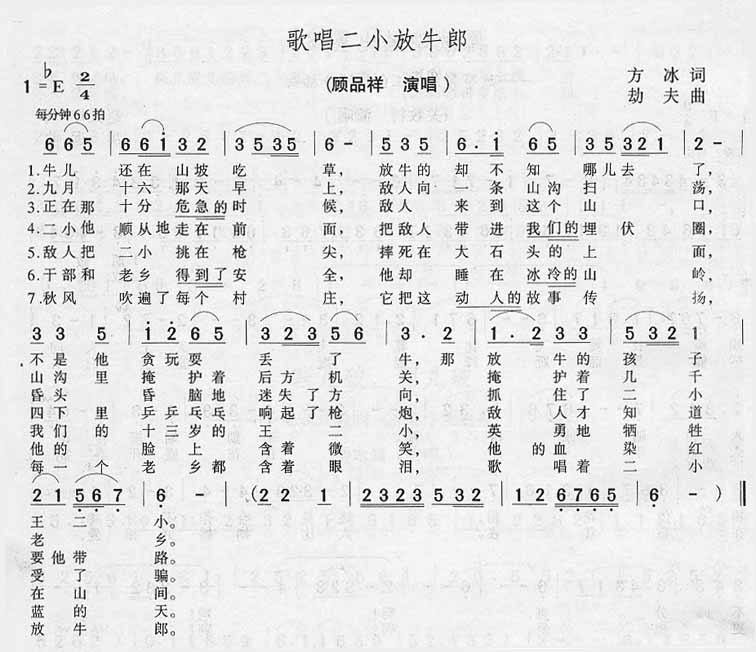 歌唱二小放牛郎
1=♭E 2/4
每分钟66拍
(顾品祥 演唱)
方 冰 词
劫 夫 曲
6 6 5 | 6 6 i 3 | 3 5 3 5 | 6 - | 3 5 3 5 | 6 · i | 3 5 3 2 1 | 2 - |
1.牛儿 还在山坡吃草, 放牛的却不知哪儿去了,
2.九月 十六那天早上, 敌人向一条山沟扫荡,
3.正在那十分危急的时候, 敌人来到这个山口,
4.二小他顺从地走在前面, 把敌人带进我们的埋伏圈,
5.敌人把二小挑在枪尖, 摔死在大石头的上面,
6.干部和老乡得到了安全, 他却睡在冰冷的山岭,
7.秋风吹遍了每个村庄, 它把这动人的故事传扬,
3 3 3 | i 2 6 5 | 3 2 3 | 5 6 | 3 · 2 | 1 2 | 3 · 2 | 3 1 |
不是他贪玩耍丢了牛,那放牛的孩子
山沟里掩护着后方机关, 掩护着几千
昏头昏脑地迷了方向, 抓住了二小
四下里乒乓乒乓响起了枪炮, 敌人才知道
我们的十三岁的王二小, 英勇地牺牲
他的脸上含着微笑, 他的血染红
每一个老乡都含着眼泪, 歌唱着二小
2 1 5 6 7 | 6 · - | (2 2 1 | 2 - | 2323 5653 | 2323 2 | 1 2 0 2 | 5765 | 6 -) |
王二小。
老乡。
要他带路。
受了骗。
在山间。
蓝的天。
放牛郎。